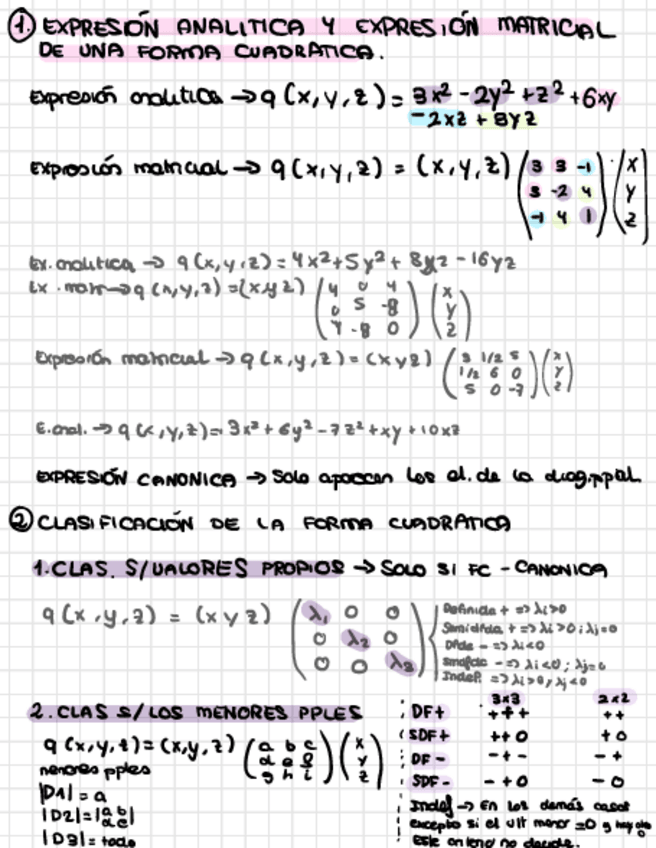 1. EXPRESIÓN ANALITICA Y EXPRESIÓN MATRICIAL
DE UNA FORMA CUADRÁTICA.
Expresión analítica → q(x,y,z) = 3x² - 2y² + z² + 6xy
- 2xz + 8yz
Expresión matricial → q(x,y,z) = (x,y,z) (3 3 -1 / 3 -2 4 / -1 4 1) · (x / y / z)
Ex. analítica → q(x,y,z) = 4x² + 5y² + 8xz - 16yz
Ex. matr → q(x,y,z) = (x y z) (4 0 4 / 0 5 -8 / 4 -8 0) (x / y / z)
Expresión matricial → q(x,y,z) = (x y z) (3 1/2 5 / 1/2 6 0 / 5 0 -7) (x / y / z)
E. anal. → q(x,y,z) = 3x² + 6y² - 7z² + xy + 10xz
EXPRESIÓN CANONICA → Solo aparecen los el. de la diag. ppal.
2 CLASIFICACIÓN DE LA FORMA CUADRATICA
1. CLAS. S/VALORES PROPIOS → SOLO SI FC - CANONICA
q(x,y,z) = (x y z) (λ₁ 0 0 / 0 λ₂ 0 / 0 0 λ₃)
Definida + => λi>0
Semidfda + => λi>0 ; λj=0
Dfda - => λi<0
Smdfda - => λi<0 ; λj=0
Indef. => λi>0, λj<0
2. CLAS S/LOS MENORES PPLES
q(x,y,z) = (x,y,z) (a b c / d e f / g h i) (x / y / z)
menores pples
|D1| = a
|D2| = |a b / d e|
|D3| = todo
3x3 2x2
DF+ +++ ++
SDF+ ++0 +0
DF- -+- -+
SDF- -+0 -0
Indef → En los demás casos
excepto si el ult menor =0 y hay
Este criterio no decide.